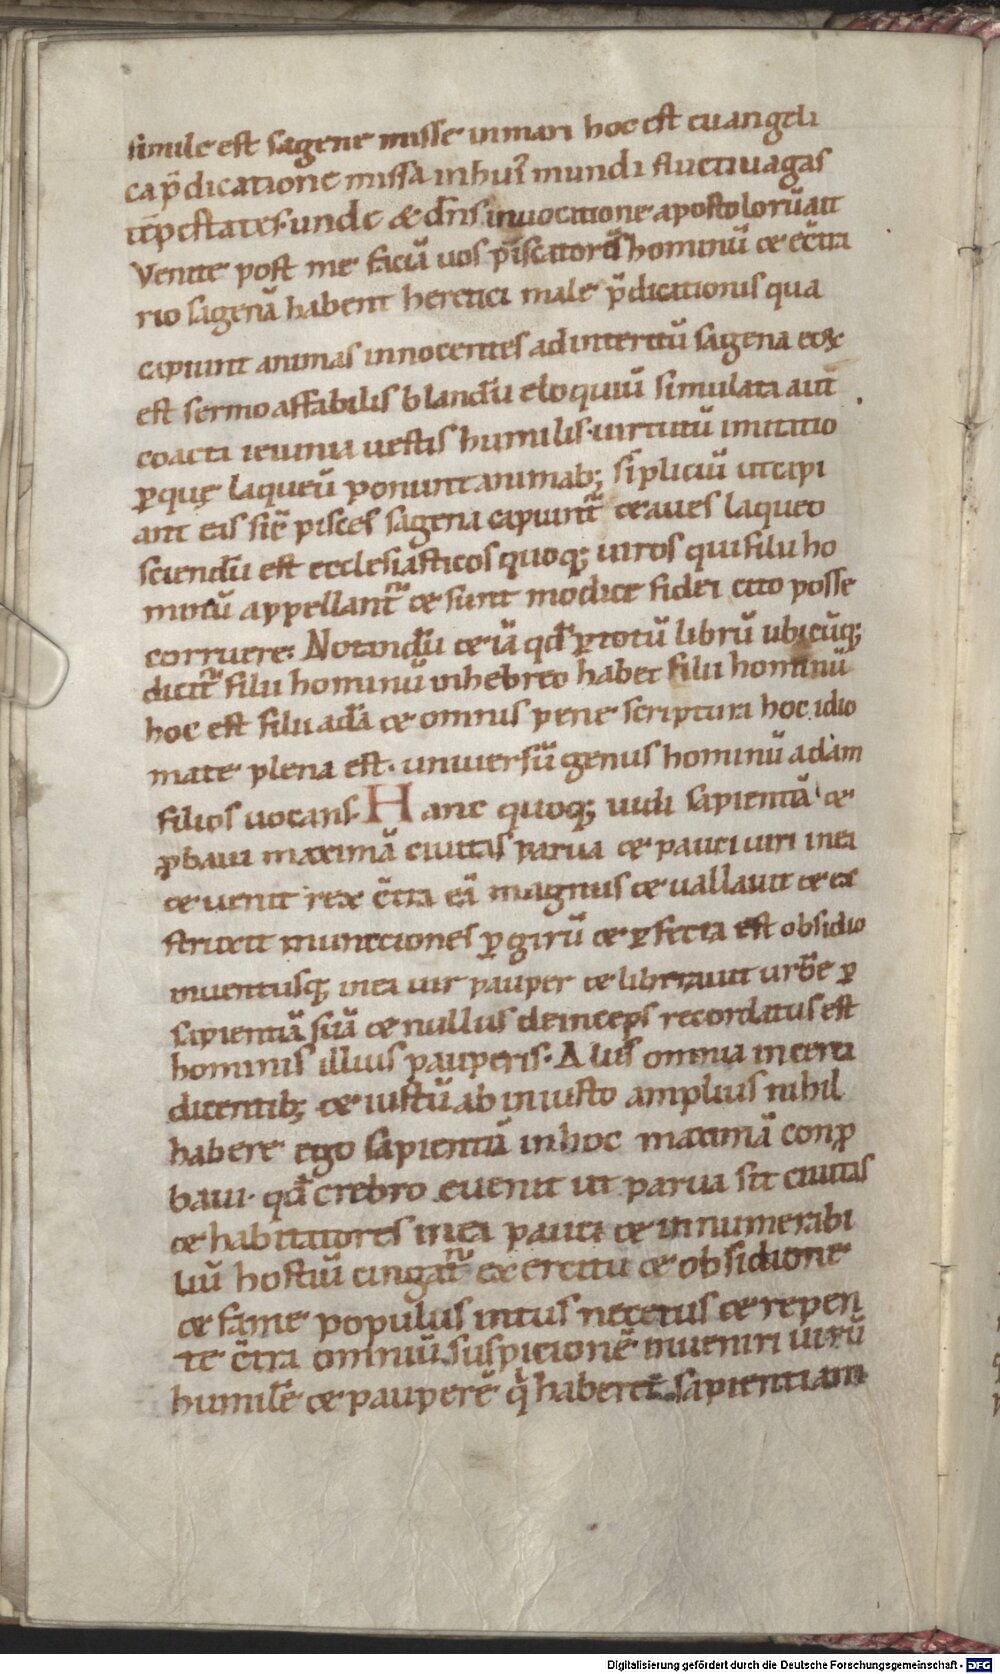 simile est sagene misse inmari hoc est euangeli
ca p̄dicatione missa inhuiꝰ mundi fluctiuagas
tēpestates. unde & dn̄s inuocatione apostolorū ait
Venite post me faciā uos piscatores hominū & ect̄ra
rio sagenā habent heretici male p̄dicationis qua
capiunt animas innocentes adinteritū sagena eoꝝ
est sermo affabilis blandū eloquiū simulata aut
coacta ieiunia uestis humilis. uirtutū imitatio
ꝑquę laqueū ponunt animab; sīpliciū ut capi
ant eas sic̄ pisces sagena capiunt᷑ & aues laqueo
sciendū est ecclesiasticos quoq; uiros qui filii ho
minū appellant᷑ & sunt modice fidei cito posse
corruere. Notandū & iā qd̄ ꝑ totū librū ubicūq;
dicit᷑ filii hominū inhebreo habet filii hominū
hoc est filii adā & omnis pene scriptura hoc idio
mate plena est. uniuersū genus hominū adam
filios uocans. Hanc quoq; uidi sapientiā &
ꝓbaui maximā ciuitas parua & pauci uiri inea
& uenit rex c̄tra eā magnus & uallauit & ex
struxit municiones ꝑ girū & ꝑfecta est obsidio
inuentusq; inea uir pauper & liberauit urbē ꝑ
sapientiā suā & nullus deinceps recordatus est
hominis illius pauperis. Aliis omnia incerta
dicentib; & iustū ab iniusto amplius nihil
habere ego sapientiā inhoc maximā conꝓ
baui. qd̄ crebro euenit ut parua sit ciuitas
& habitatores inea pauci & innumerabi
liū hostiū cingat᷑ exercitu & obsidione
& fame populus intus necetus & repen
te c̄tra omniū suspicionē inueniri uirū
humilē & pauperē q̇ haberet sapientiam
Digitalisierung gefördert durch die Deutsche Forschungsgemeinschaft - DFG